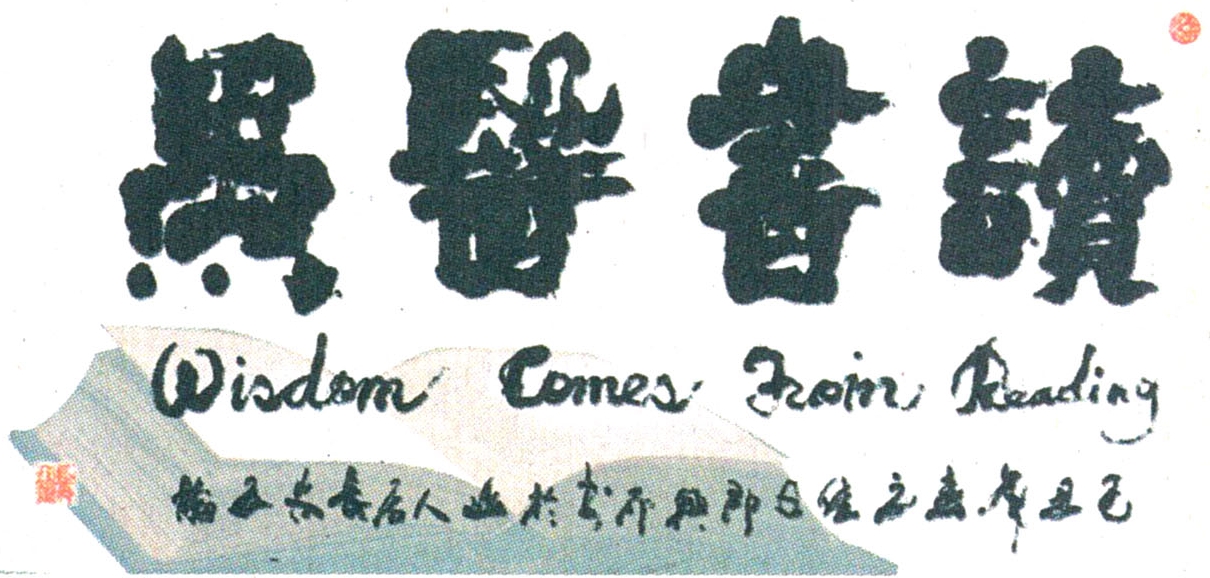 讀書醫愚
Wisdom Comes From Reading
己丑 佳日即興 書於幽人居